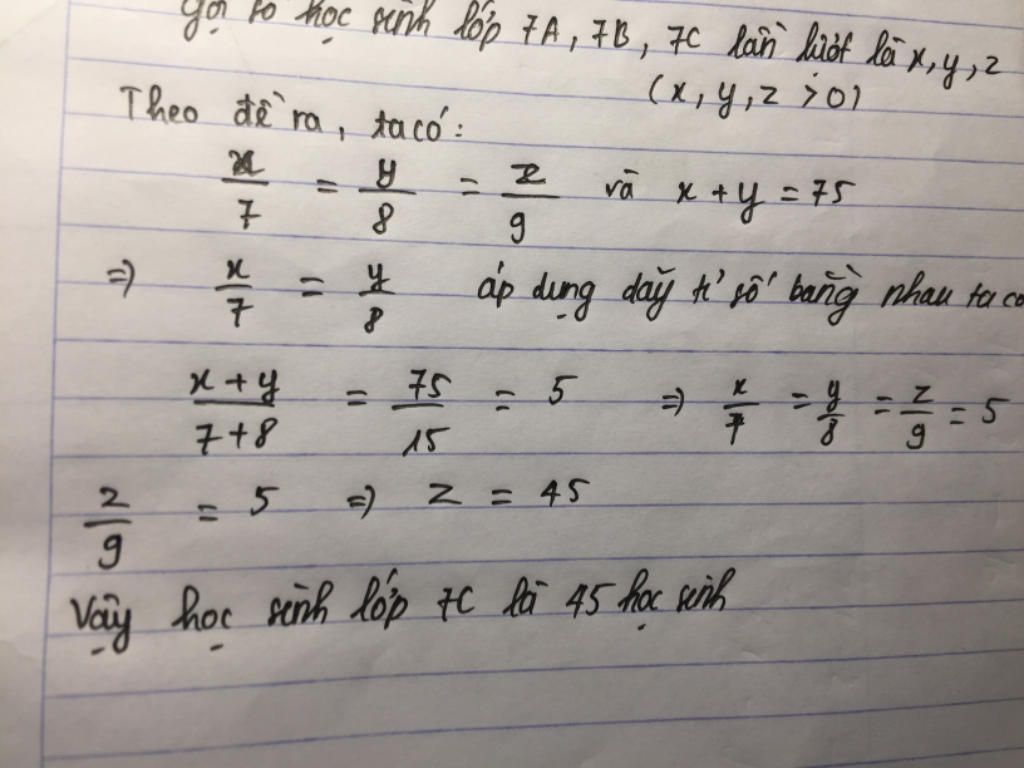 Gọi số học sinh lớp 7A, 7B, 7C lần lượt là x, y, z
(x, y, z > 0)
Theo đề ra, ta có:
x/7 = y/8 = z/9 và x + y = 75
=> x/7 = y/8 áp dụng dãy tỉ số bằng nhau ta có
x + y / 7 + 8 = 75/15 = 5 => x/7 = y/8 = z/9 = 5
z/9 = 5 => z = 45
Vậy học sinh lớp 7C là 45 học sinh